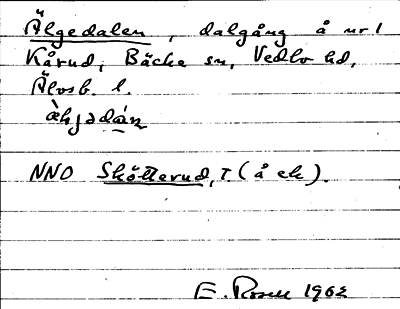 Älgedalen, dalgång å nr 1
Kårud, Bäcke sn, Vedbo hd,
Älvsb. l.
NNO Skötterud, T. (å ek).
E. Rosell 1962